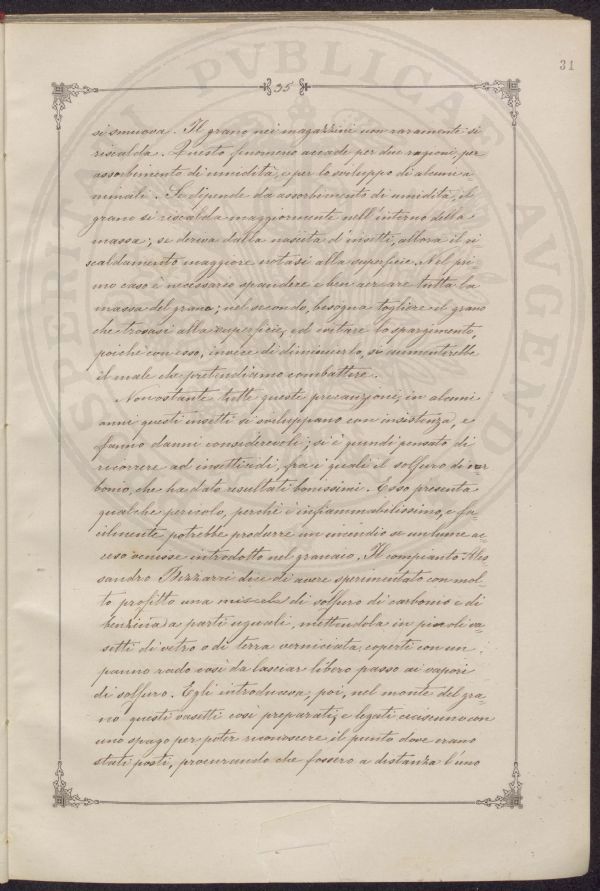 31
35
si smuova. Il grano nei magazzini non raramente si
riscalda. Questo fenomeno accade per due ragioni, per
assorbimento di umidità, e per lo sviluppo di alcuni a-
nimali. Se dipende da assorbimento di umidità, il
grano si riscalda maggiormente nell'interno della
massa; se deriva dalla nascita d'insetti, allora il ri
scaldamento maggiore notasi alla superficie. Nel pri-
mo caso è necessario spandere e ben aereare tutta la
massa del grano; nel secondo, bisogna togliere il grano
che trovasi alla superficie, ed evitare lo spargimento,
poichè con esso, invece di diminuerlo, si aumenterebbe
il male che pretendiamo combattere.
Nonostante tutte queste precauzioni, in alcuni
anni questi insetti si sviluppano con insistenza, e
fanno danni considerevoli; si è quindi pensato di
ricorrere ad insetticidi, fra i quali il solfuro di car
bonio, che ha dato resultati bonissimi. Esso presenta
qualche pericolo, perchè è infiammabilissimo, e fa-
cilmente potrebbe produrre un incendio se un lume ac-
ceso venisse introdotto nel granaio. Il compianto Ales
sandro Bizzarri dice di avere sperimentato con mol-
to profitto una miscela di solfuro di carbonio e di
benzina a parti uguali, mettendola in piccoli va-
setti di vetro o di terra verniciata, coperti con un
panno rado così da lasciar libero passo ai vapori
di solfuro. Egli introduceva, poi, nel monte del gra-
no questi vasetti così preparati, e legati ciascuno con
uno spago per poter riconoscere il punto dove erano
stati posti, procurando che fossero a distanza l'uno
SPEI ALTERI PVBLICAE AVGENDAE